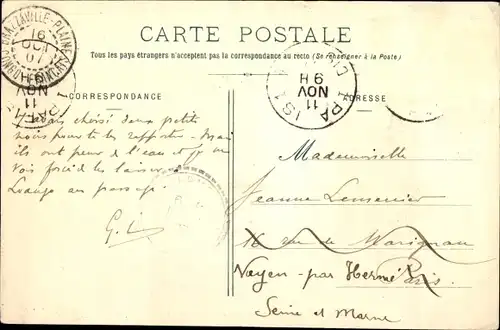 CARTE POSTALE
Tous les pays étrangers n'acceptent pas la correspondance au recto (Se renseigner à la Poste)
CORRESPONDANCE
ADRESSE
BRAZZAVILLE-PLAINE
16
OCT
07
PARIS 1
9H
11
NOV
J'avais choisi deux petits
noirs pour te les rapporter. Mais
ils ont peur de l'eau et je me
vois forcé de les laisser
Loango au passage.
Mademoiselle
Jeanne
16 rue de Marignan
Paris
par Hermé
Seine et Marne